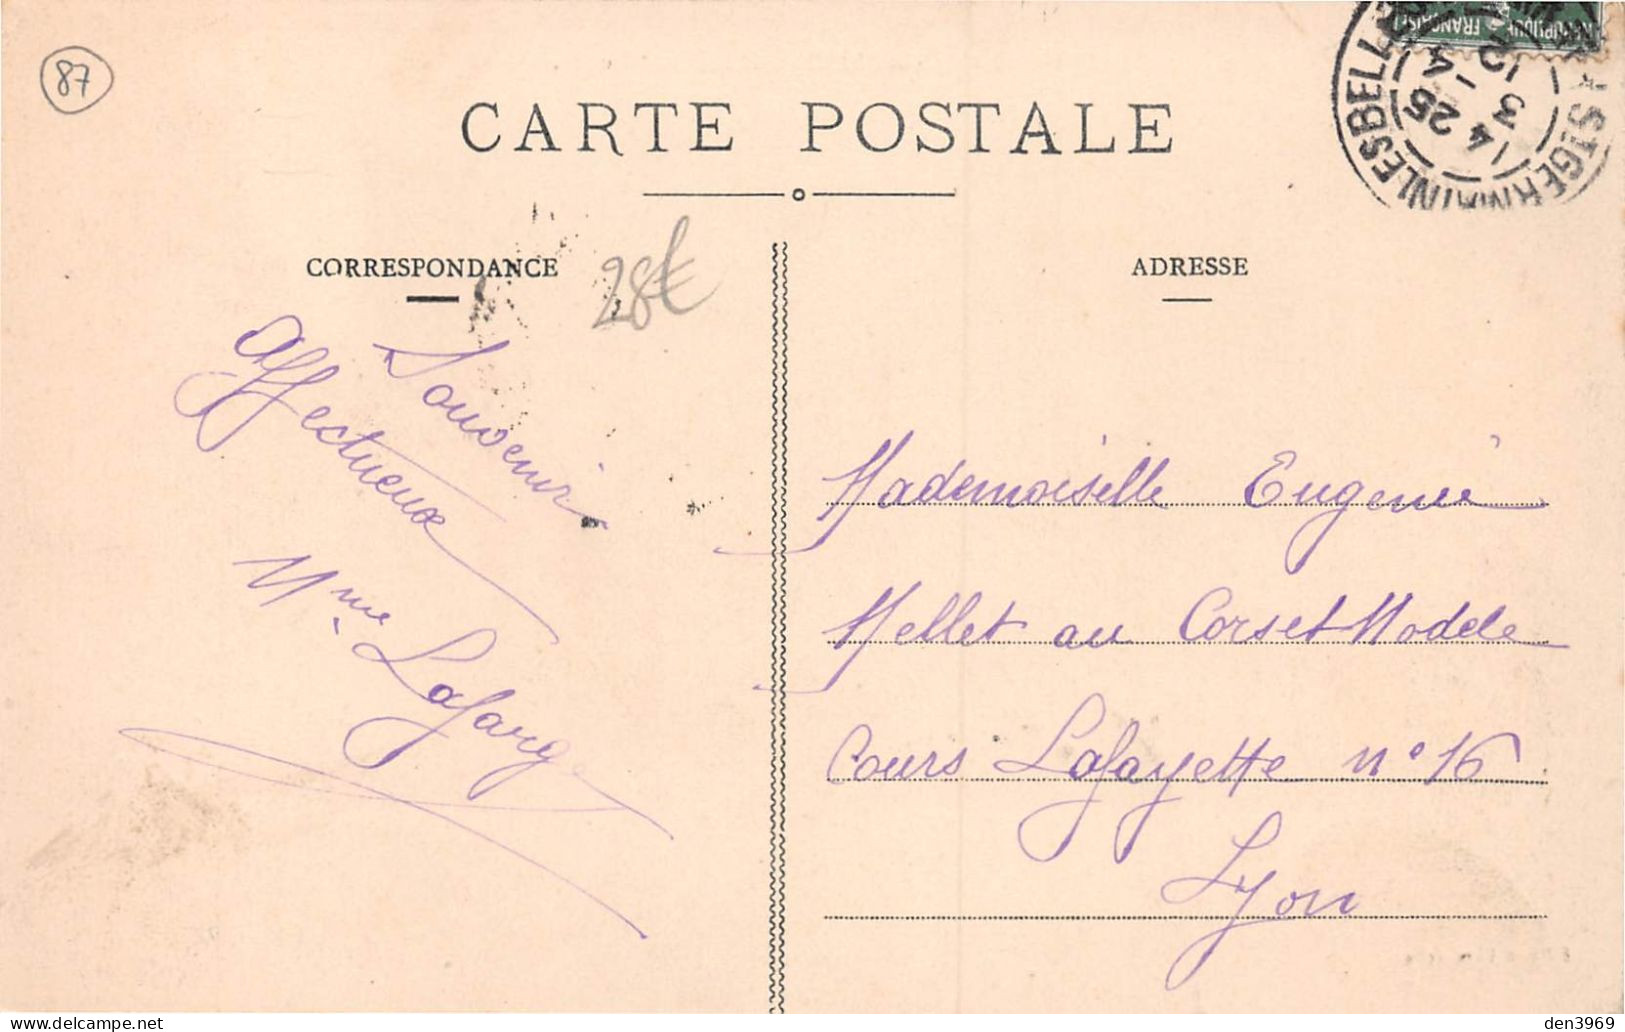 87
CARTE POSTALE
RÉPUBLIQUE FRANÇAISE
ST GERMAIN LES BELLES
14 25
3 - 4
12
CORRESPONDANCE
28€
ADRESSE
Souvenir
affectueux
Mme Lafarge
Mademoiselle Eugenie
Mellet au Corset Modele
Cours Lafayette n° 16
Lyon
den3969